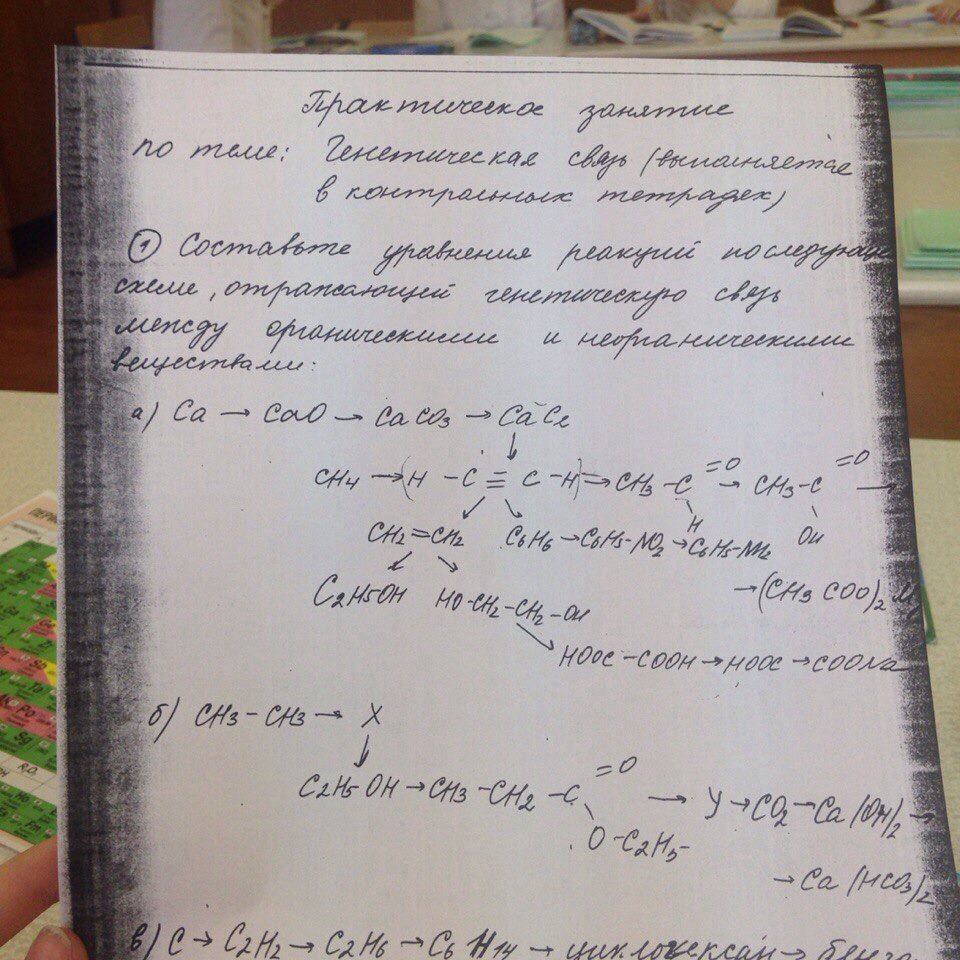 Практическое занятие
по теме: Генетическая связь (выполняется
в контрольных тетрадях)
① Составьте уравнения реакций
схеме, отражающей генетическую связь
между органическими и неорганическими
веществами:
а) Ca → CaO → CaCO3 → CaC2
↓
CH4 → (H - C ≡ C - H) → CH3 - C =O → CH3-C =O →
H OH
CH2=CH2 C6H6 → C6H5-NO2 → C6H5-NH2
→ (CH3COO)2
C2H5OH HO-CH2-CH2-OH
HOOC-COOH → HOOC → COONa
б) CH3-CH3 → X
↓
C2H5OH → CH3-CH2-C =O → У → CO2 → Ca(OH)2 →
O-C2H5-
→ Ca(HCO3)2
в) C → C2H2 → C2H6 → C6H14 → циклогексан →